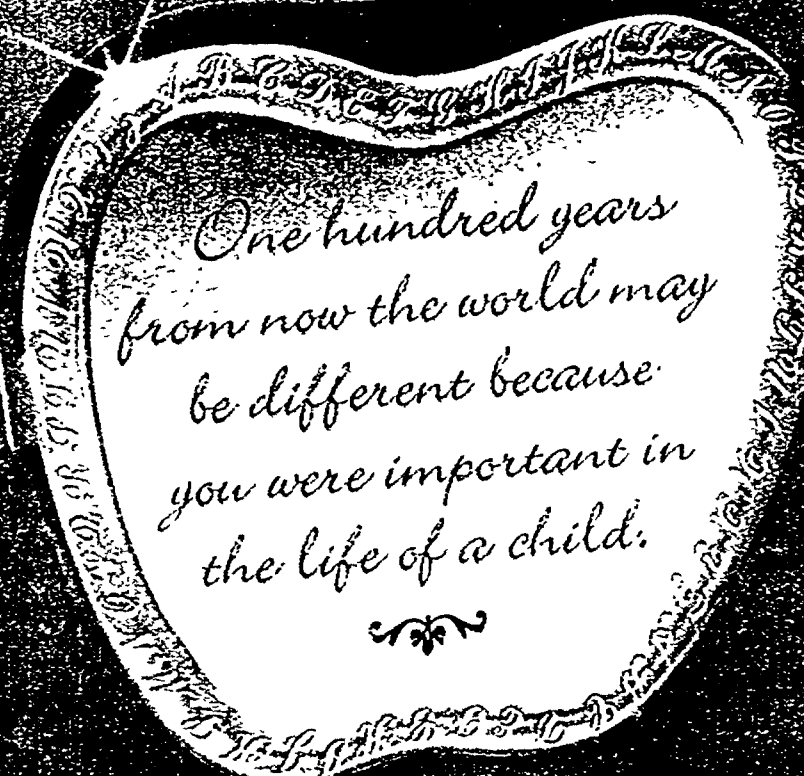 One hundred years
from now the world may
be different because
you were important in
the life of a child.